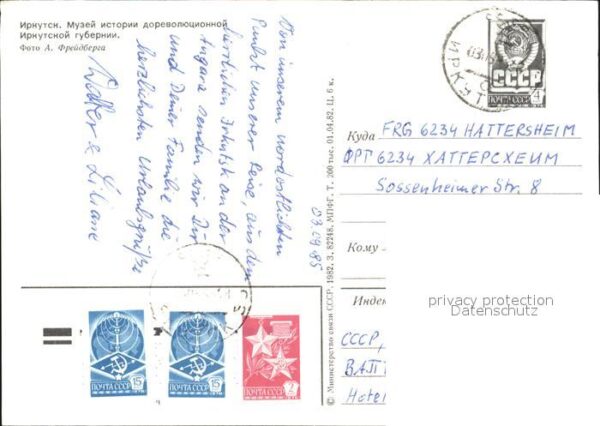 Иркутск. Музей истории дореволюционной
Иркутской губернии.
Фото А. Фрейдберга
Von unserem nordöstlichsten
Punkt unserer Reise, aus dem
herrlichen Irkutsk an der
Angara senden wir Dir
und Deiner Familie die
herzlichsten Urlaubsgrüße
Walter & Liliane
03.09.85
© Министерство связи СССР. 1982. З. 82248. МПФГ. Т. 200 тыс. 01.04.82. Ц. 6 к.
ИРКУТ
СССР
ПОЧТА СССР 4
Куда FRG 6234 HATTERSHEIM
ФРГ 6234 ХАТТЕРСХЕИМ
Sossenheimer Str. 8
Кому
privacy protection
Datenschutz
Индек
СССР,
Hotel
ПОЧТА СССР 15
ПОЧТА СССР 15
ПОЧТА СССР 2